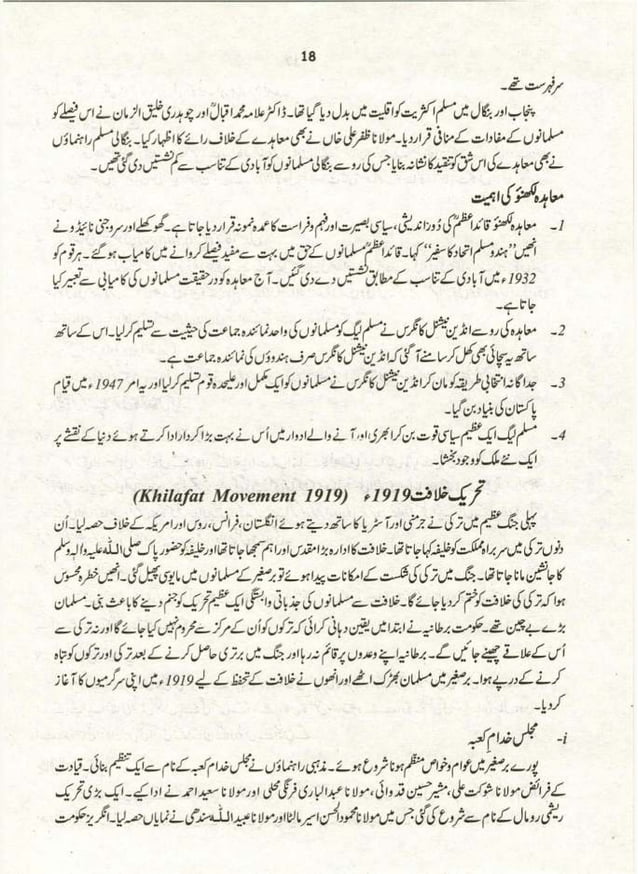 18
سرفہرست تھے۔
پنجاب اور بنگال میں مسلم اکثریت کو اقلیت میں بدل دیا گیا تھا۔ ڈاکٹر علامہ محمد اقبالؒ اور چوہدری خلیق الزمان نے اس فیصلے کو
مسلمانوں کے مفادات کے منافی قرار دیا۔ مولانا ظفر علی خاں نے بھی معاہدے کے خلاف رائے کا اظہار کیا۔ بنگالی مسلم راہنماؤں
نے بھی معاہدے کی اس شق کو تنقید کا نشانہ بنایا جس کی رو سے بنگالی مسلمانوں کو آبادی کے تناسب سے کم نشستیں دی گئی تھیں۔
معاہدہ لکھنؤ کی اہمیت
1۔ معاہدہ لکھنؤ قائداعظمؒ کی دُور اندیشی، سیاسی بصیرت اور فہم و فراست کا عمدہ نمونہ قرار دیا جاتا ہے۔ گھوکھلے اور سروجنی نائیڈو نے
انھیں ’’ہندو مسلم اتحاد کا سفیر‘‘ کہا۔ قائداعظمؒ مسلمانوں کے حق میں بہت سے مفید فیصلے کروانے میں کامیاب ہو گئے۔ ہر قوم کو
1932ء میں آبادی کے تناسب کے مطابق نشستیں دے دی گئیں۔ آج معاہدہ کو درحقیقت مسلمانوں کی کامیابی سے تعبیر کیا
جاتا ہے۔
2۔ معاہدہ کی رو سے انڈین نیشنل کانگرس نے مسلم لیگ کو مسلمانوں کی واحد نمائندہ جماعت کی حیثیت سے تسلیم کر لیا۔ اس کے ساتھ
ساتھ یہ سچائی بھی کھل کر سامنے آ گئی کہ انڈین نیشنل کانگرس صرف ہندوؤں کی نمائندہ جماعت ہے۔
3۔ جداگانہ انتخابی طریقہ کو مان کر انڈین نیشنل کانگرس نے مسلمانوں کو ایک مکمل اور علیحدہ قوم تسلیم کر لیا اور یہ امر 1947ء میں قیام
پاکستان کی بنیاد بن گیا۔
4۔ مسلم لیگ ایک عظیم سیاسی قوت بن کر ابھری اور آنے والے ادوار میں اُس نے بہت بڑا کردار ادا کرتے ہوئے دنیا کے نقشے پر
ایک نئے ملک کو وجود بخشا۔
تحریک خلافت 1919ء (Khilafat Movement 1919)
پہلی جنگ عظیم میں ترکی نے جرمنی اور آسٹریا کا ساتھ دیتے ہوئے انگلستان، فرانس، روس اور امریکہ کے خلاف حصہ لیا۔ اُن
دنوں ترکی میں سربراہ مملکت کو خلیفہ کہا جاتا تھا۔ خلافت کا ادارہ بڑا مقدس اور اہم سمجھا جاتا تھا اور خلیفہ کو حضور پاک صلی اللہ علیہ وآلہ وسلم
کا جانشین مانا جاتا تھا۔ جنگ میں ترکی کی شکست کے امکانات پیدا ہوئے تو برصغیر کے مسلمانوں میں مایوسی پھیل گئی۔ انھیں خطرہ محسوس
ہوا کہ ترکی کی خلافت کو ختم کر دیا جائے گا۔ خلافت سے مسلمانوں کی جذباتی وابستگی ایک عظیم تحریک کو جنم دینے کا باعث بنی۔ مسلمان
بڑے بے چین تھے۔ حکومت برطانیہ نے ابتدا میں یقین دہانی کرائی کہ ترکوں کو اُن کے مرکز سے محروم نہیں کیا جائے گا اور نہ ترکی سے
اُس کے علاقے چھینے جائیں گے۔ برطانیہ اپنے وعدوں پر قائم نہ رہا اور جنگ میں برتری حاصل کرنے کے بعد ترکی اور ترکوں کو تباہ
کرنے کے درپے ہوا۔ برصغیر میں مسلمان بھڑک اٹھے اور انھوں نے خلافت کے تحفظ کے لیے 1919ء میں اپنی سرگرمیوں کا آغاز
کر دیا۔
i۔ مجلس خدام کعبہ
پورے برصغیر میں عوام و خواص منظم ہونا شروع ہوئے۔ مذہبی راہنماؤں نے مجلس خدام کعبہ کے نام سے ایک تنظیم بنائی۔ قیادت
کے فرائض مولانا شوکت علی، مشیر حسین قدوائی، مولانا عبدالباری فرنگی محلی اور مولانا سعید احمد نے ادا کیے۔ ایک بڑی تحریک
ریشمی رومال کے نام سے شروع کی گئی جس میں مولانا محمود الحسن اسیر مالٹا اور مولانا عبید اللہ سندھی نے نمایاں حصہ لیا۔ انگریز حکومت